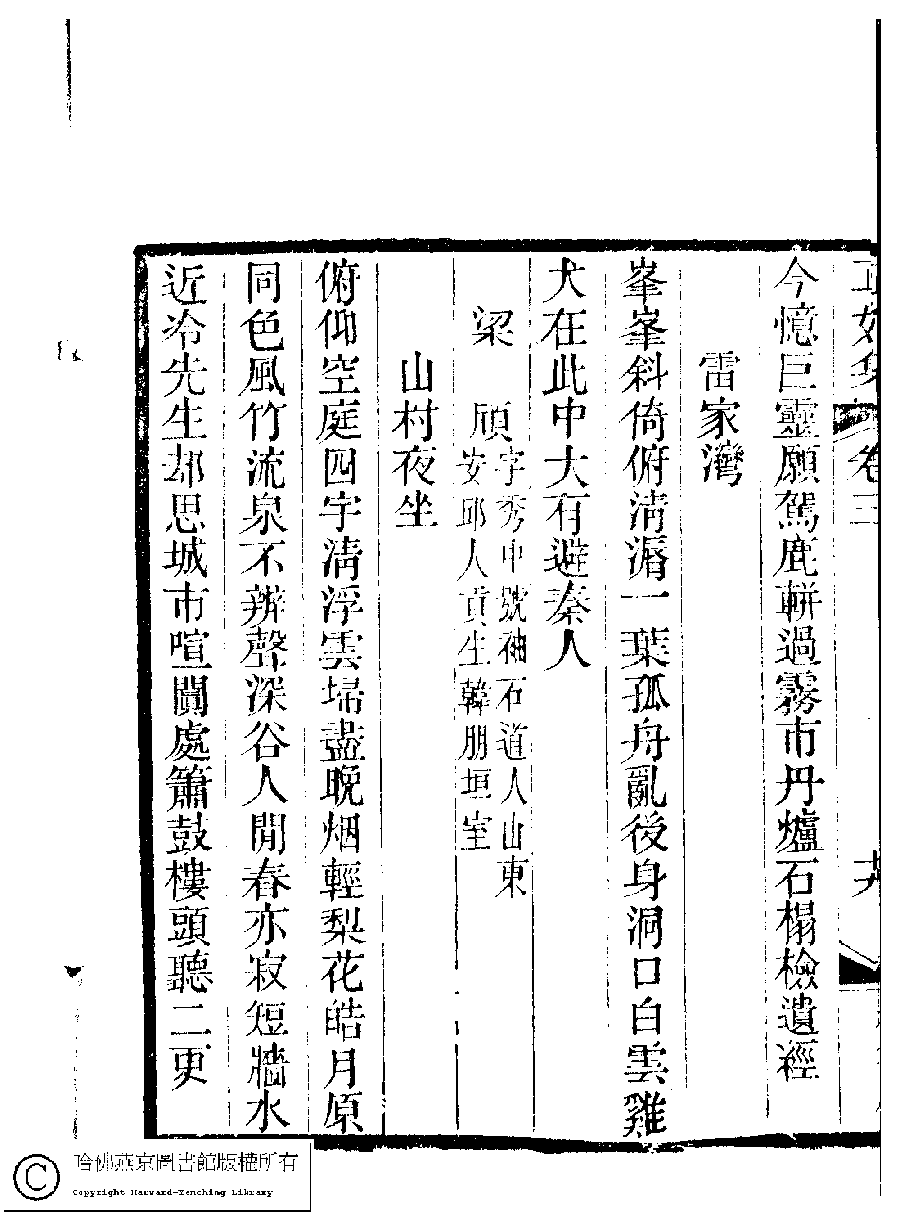 正始集 卷三 廿八
今憶巨靈願駕鹿軿過霧市丹爐石榻檢遺經
雷家灣
峯峯斜倚俯淸漘一葉孤舟亂後身洞口白雲雞
犬在此中大有避秦人
梁頎字秀中號袖石道人山東
安邱人貢生韓朋垣室
山村夜坐
俯仰空庭四宇淸浮雲埽盡晚烟輕梨花皓月原
同色風竹流泉不辨聲深谷人閒春亦寂短牆水
近冷先生却思城市喧闐處簫鼓樓頭聽二更
哈佛燕京圖書館版權所有
Copyright Harvard-Yenching Library